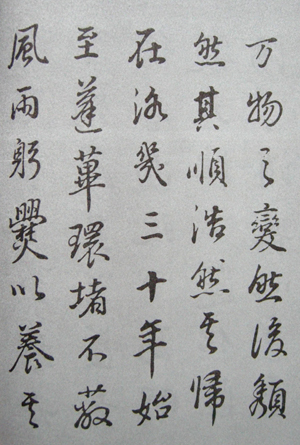 万物之變然後頹
然其順浩然其歸
在洛幾三十年始
至蓬蓽環堵不蔽
風雨躬爨以養其